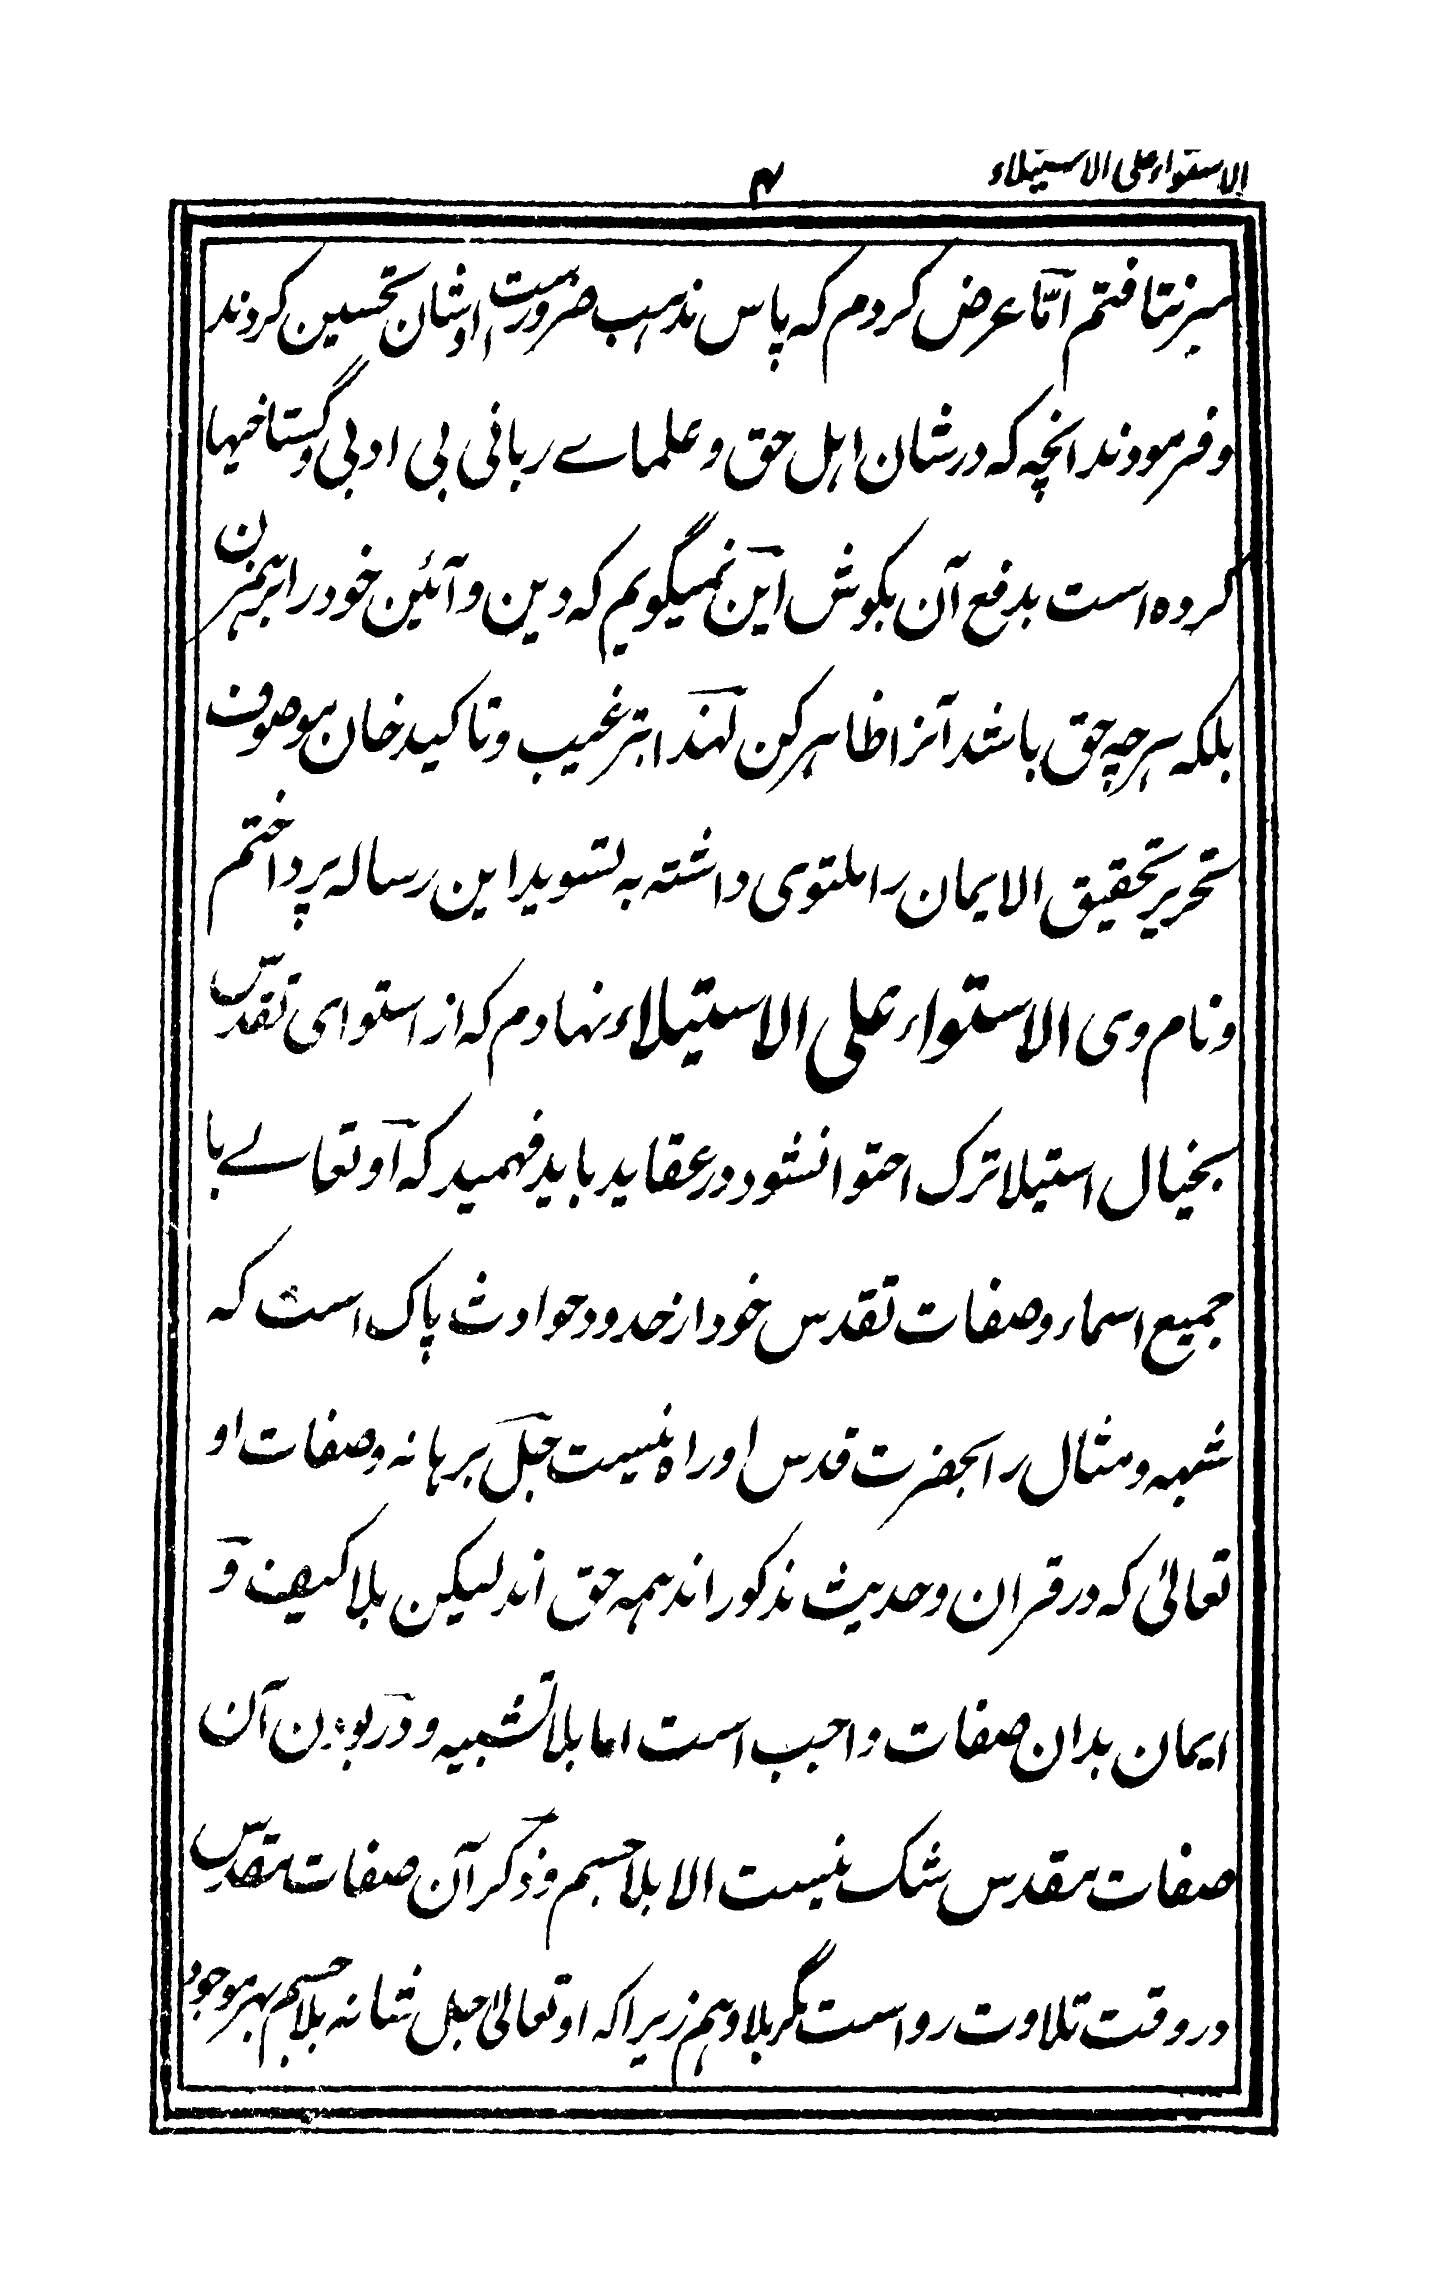 الاستواء علی الاستیلاء
۴
سرنتافتم امّا عرض کردم که پاس مذهب ضرورست اوشان تحسین کردند
و فرمودند انچه که در شان اهل حق و علماے ربانی بی ادبی و گستاخیها
کرده است بدفع آن بکوش این نمیگویم که دین و آئین خود را برهم زن
بلکه هرچه حق باشد آنرا ظاهر کن لهذا بترغیب و تاکید خان موصوف
تحریر تحقیق الایمان را ملتوی داشته به تسوید این رساله پرداختم
و نام وی الاستواء علی الاستیلاء نهادم که از استوای تقدّس
بخیال استیلا ترک احتوا نشود در عقاید باید فهمید که او تعالے با
جمیع اسماء و صفات تقدس خود از حدود حوادث پاک است که
شبهه و مثال را بحضرت قدس او راه نیست جل برهانه و صفات او
تعالیٰ که در قران و حدیث مذکور اند همه حق اند لیکن بلا کیف و
ایمان بدان صفات واجب است اما بلا تشبیه و در بودن آن
صفات مقدس شک نیست الا بلا جسم و ذکر آن صفات مقدّس
در وقت تلاوت رواست مگر بلا وهم زیرا که او تعالیٰ جل شانه بلا جسم بهر موجود